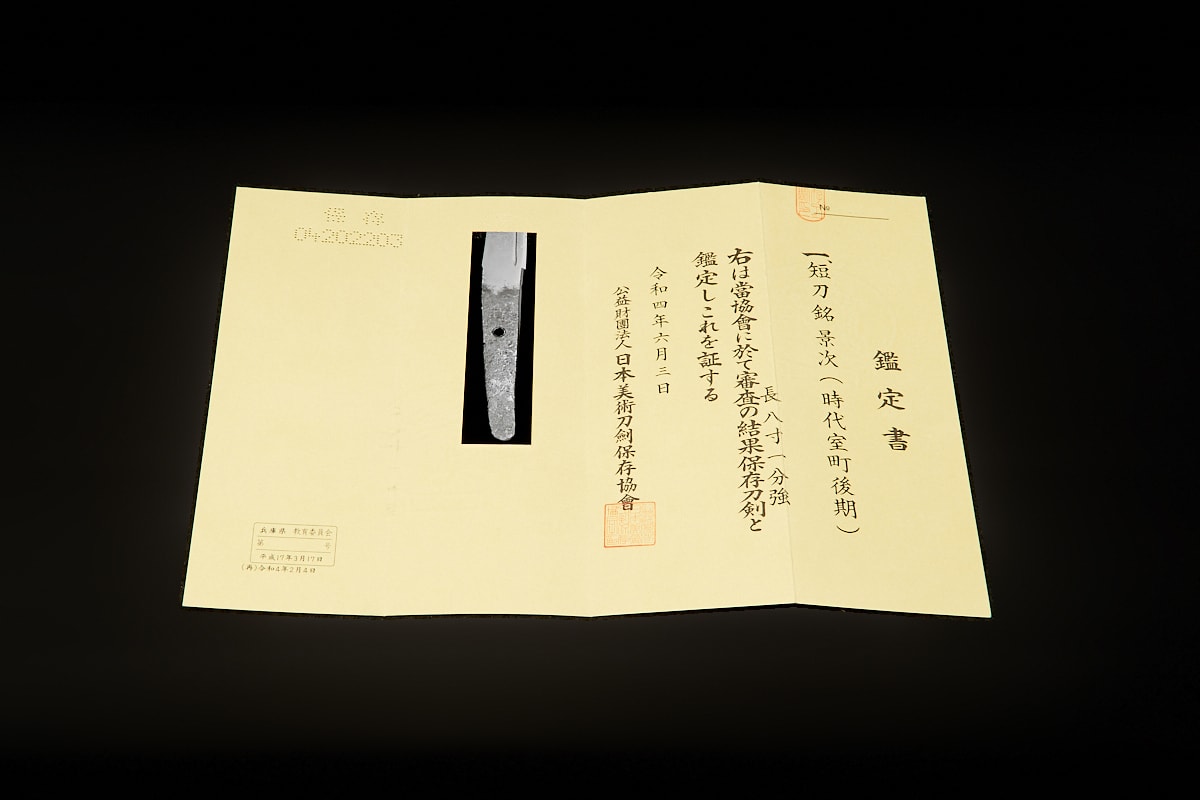 鑑定書
No
一、短刀 銘 景次(時代室町後期)
長 八寸一分強
右は當協會に於て審査の結果保存刀剣と
鑑定しこれを証する
令和四年六月三日
公益財團法人日本美術刀劍保存協會
保存
04202203
兵庫県 教育委員会
第 号
平成17年3月17日
(再)令和4年2月8日